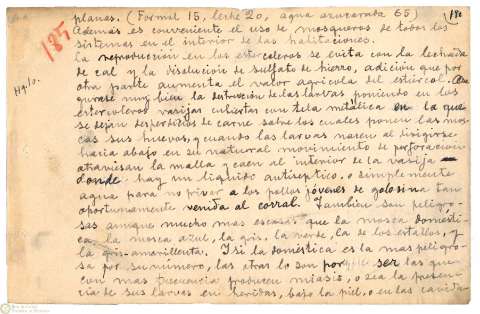 planas. (Formol 15, leche 20, agua azucarada 65)
Además es conveniente el uso de mosqueros de todos los
sistemas en el interior de las habitaciones.
La reproducción en los estercoleros se evita con la lechada
de cal y la disolución de sulfato de hierro, adición que por
otra parte aumenta el valor agrícola del estiércol.
muy bien la destrucción de las larvas poniendo en los
estercoleros vasijas cubiertas con tela metálica en la que
se dejan desperdicios de carne sobre los cuales ponen las mos-
cas sus huevos, y cuando las larvas nacen al dirigirse
hacia abajo en su natural movimiento de perforación
atraviesan la malla y caen al interior de la vasija
donde hay un líquido antiséptico, o simplemente
agua para no privar a los pollos jóvenes de golosina tan
oportunamente venida al corral. Tambien son peligro-
sas aunque mucho mas escasas que la mosca domésti-
ca, la mosca azul, la gris, la verde, la de los establos, y
la gris-amarillenta. Y si la doméstica es la mas peligro-
sa por su número, las otras lo son porque ser las que
con mas frecuencia producen miasis, o sea la presen-
cia de sus larvas en heridas, bajo la piel, o en las cavida-
185
Hq.10.
182